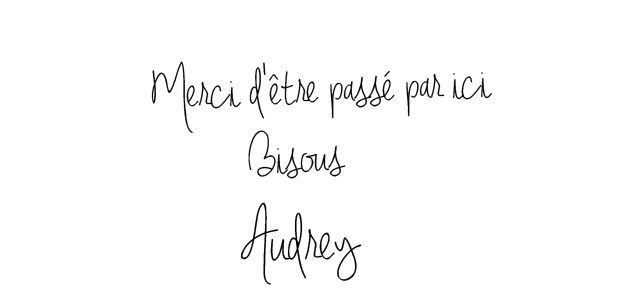 Merci d'être passé par ici
Bisous
Audrey